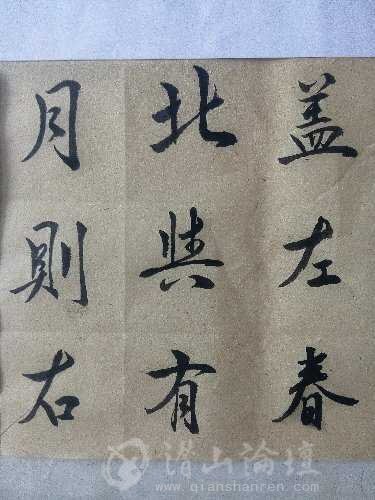 盖左春
北與有
月則右
潜山论坛
www.qianshanren.com